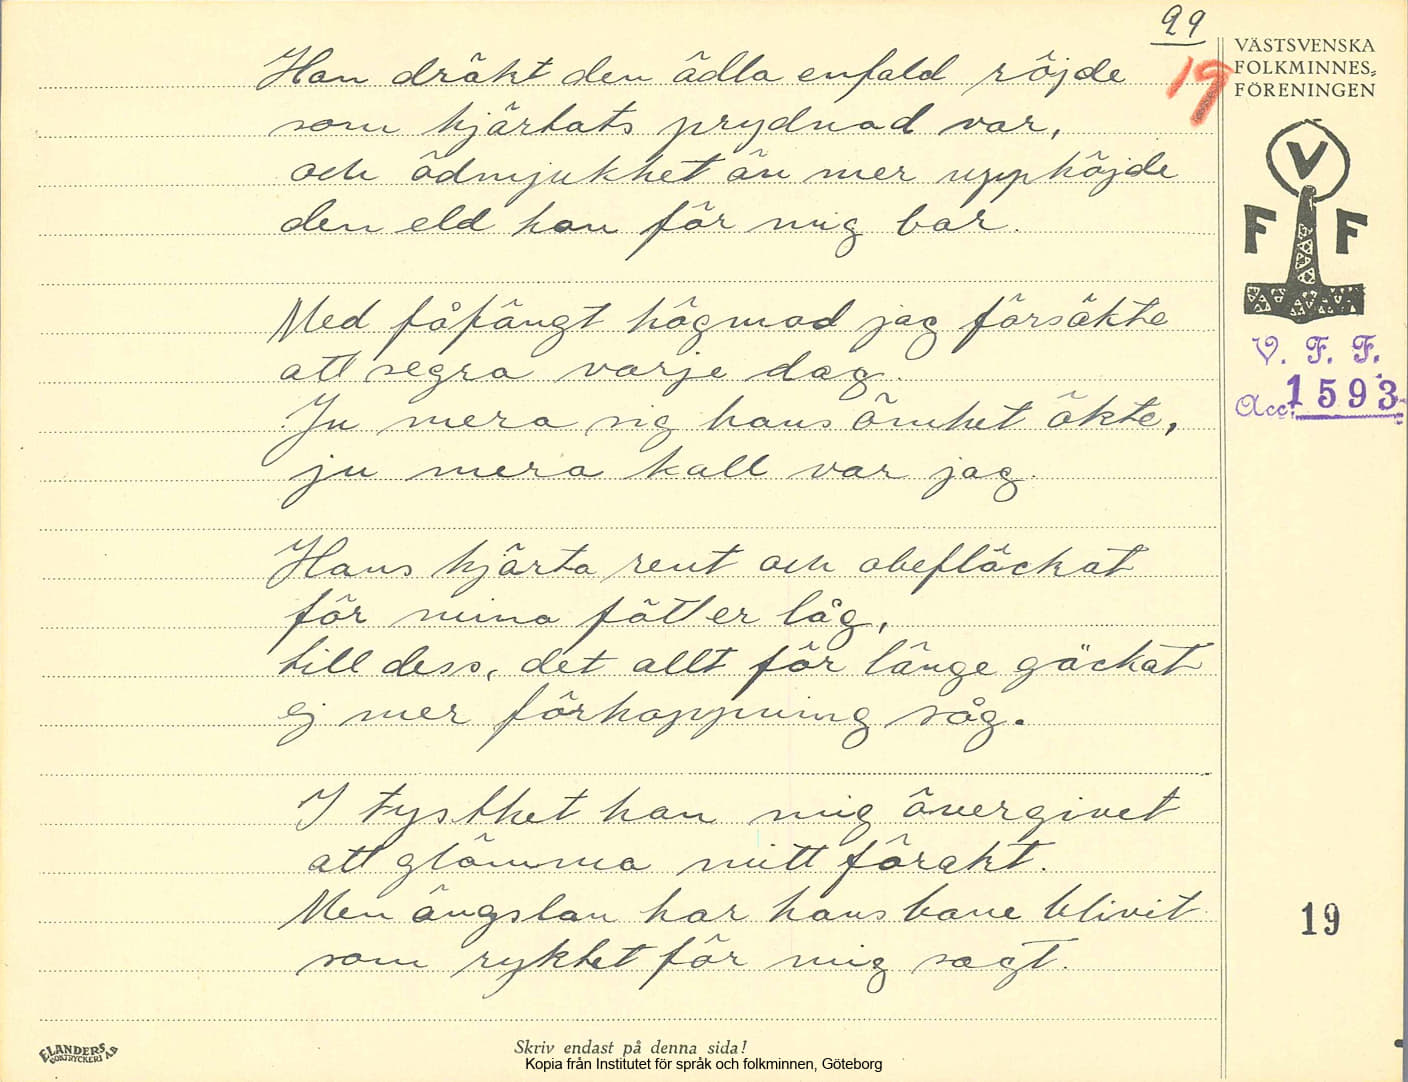 99
19
VÄSTSVENSKA
FOLKMINNES-
FÖRENINGEN
V
F F
V. F. F.
Acc. 1593
Han dräkt den ädla enfald röjde
som hjärtats prydnad var,
och ödmjukhet än mer upphöjde
den eld han för mig bar.
Med fåfängt högmod jag försökte
att segra varje dag.
Ju mera sig hans ömhet ökte,
ju mera kall var jag.
Hans hjärta rent och obefläckat
för mina fötter låg,
till dess, det allt för länge gäckat
ej mer förhoppning såg.
I tysthet han mig övergivet
att glömma mitt förakt.
Men ängslan har hans bane blivit
som ryktet för mig sagt.
19
ELANDERS
BOKTRYCKERI AB
Skriv endast på denna sida!
Kopia från Institutet för språk och folkminnen, Göteborg